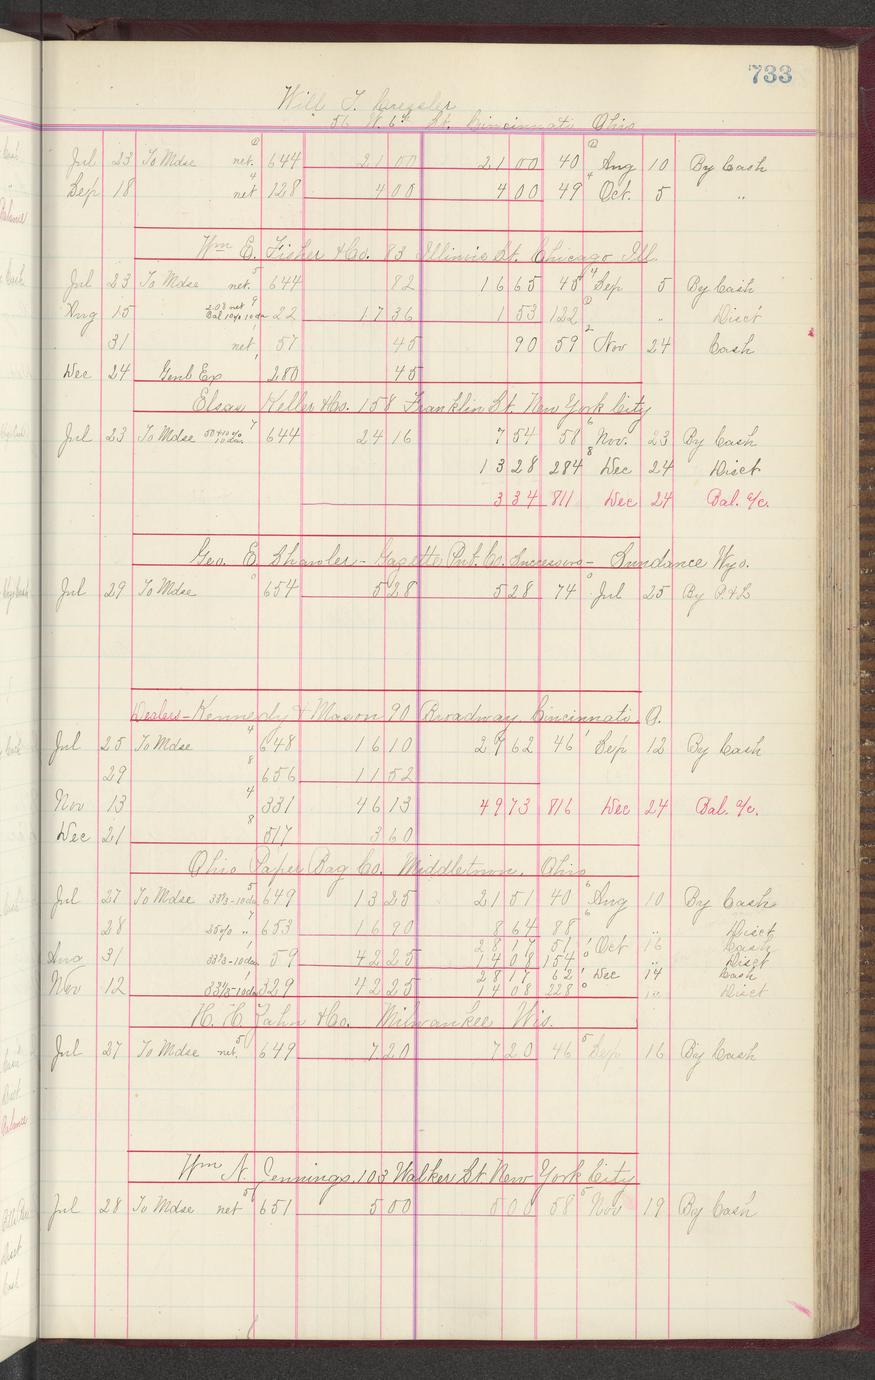 733
Will T.
56 W. 6th St. Cincinnati Ohio
Jul 23 To Mdse net. 644 21 00 21 00 40 Aug 10 By Cash
Sep 18 net 128 4 00 4 00 49 Oct. 5 "
Wm E. Fisher & Co. 83 Illinois St. Chicago Ill.
Jul 23 To Mdse net. 644 82 16 65 45 Sep 5 By Cash
Aug 15 2.08 net Bal 10% 10 da 22 17 36 1 53 122 " Disct
31 net 57 45 90 59 Nov 24 Cash
Dec 24 Genl Ex 280 45
Elsas Keller & Co. 158 Franklin St. New York City
Jul 23 To Mdse 50+10% 10 da. 644 24 16 7 54 58 Nov. 23 By Cash
13 28 284 Dec 24 Disct
3 34 811 Dec 24 Bal. a/c.
Geo. E. - Gazette Pub. Co. Successors - Sundance Wyo.
Jul 29 To Mdse 654 5 28 5 28 74 Jul 25 By P. & L
Dealers - Kennedy & Mason 90 Broadway Cincinnati O.
Jul 25 To Mdse 648 16 10 27 62 46 Sep 12 By Cash
29 656 11 52
Nov 13 331 46 13 49 73 816 Dec 24 Bal. a/c.
Dec 21 517 3 60
Ohio Paper Bag Co. Middletown, Ohio
Jul 27 To Mdse 33⅓-10 da 649 13 25 21 51 40 Aug 10 By Cash
28 35% " 653 16 90 8 64 88 " Disct
28 17 51 Oct 16 Cash
Aug 31 33⅓-10 da. 59 42 25 14 08 154 " Disct
28 17 62 Dec 14 Cash
Nov 12 33⅓-10 da 329 42 25 14 08 228 " Disct
H. H. Zahn & Co. Milwaukee Wis.
Jul 27 To Mdse net. 649 7 20 7 20 46 Sep 16 By Cash
Wm N. Jennings, 103 Walker St New York City
Jul 28 To Mdse net 651 5 00 5 00 58 Nov 19 By Cash